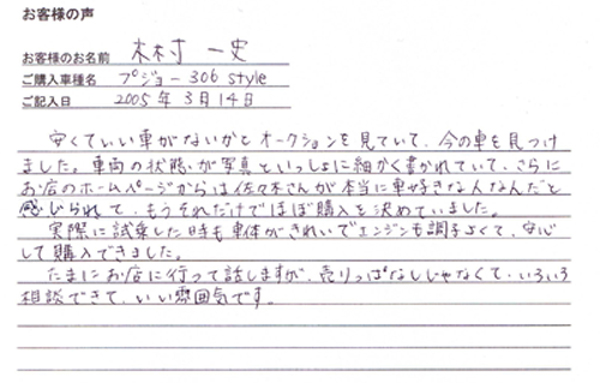 お客様の声
お客様のお名前 木村 一史
ご購入車種名 プジョー306 style
ご記入日 2005年3月14日
安くていい車がないかとオークションを見ていて、今の車を見つけ
ました。車両の状態が写真といっしょに細かく書かれていて、さらに
お店のホームページからは佐々木さんが本当に車好きな人なんだと
感じられて、もうそれだけでほぼ購入を決めていました。
実際に試乗した時も車体がきれいでエンジンも調子よくて、安心
して購入できました。
たまにお店に行って話しますが、売りっぱなしじゃなくて、いろいろ
相談できて、いい雰囲気です。